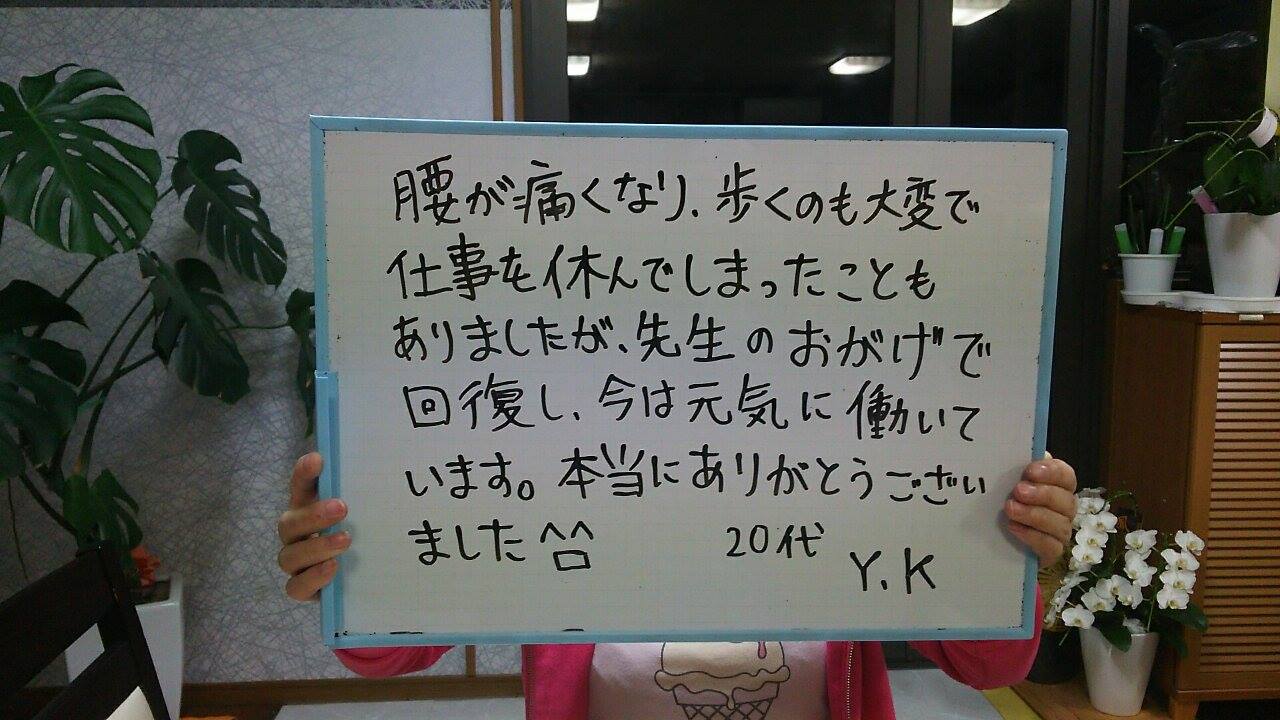 腰が痛くなり、歩くのも大変で
仕事を休んでしまったことも
ありましたが、先生のおがげで
回復し、今は元気に働いて
います。本当にありがとうござい
ました ^口^
20代
Y.K